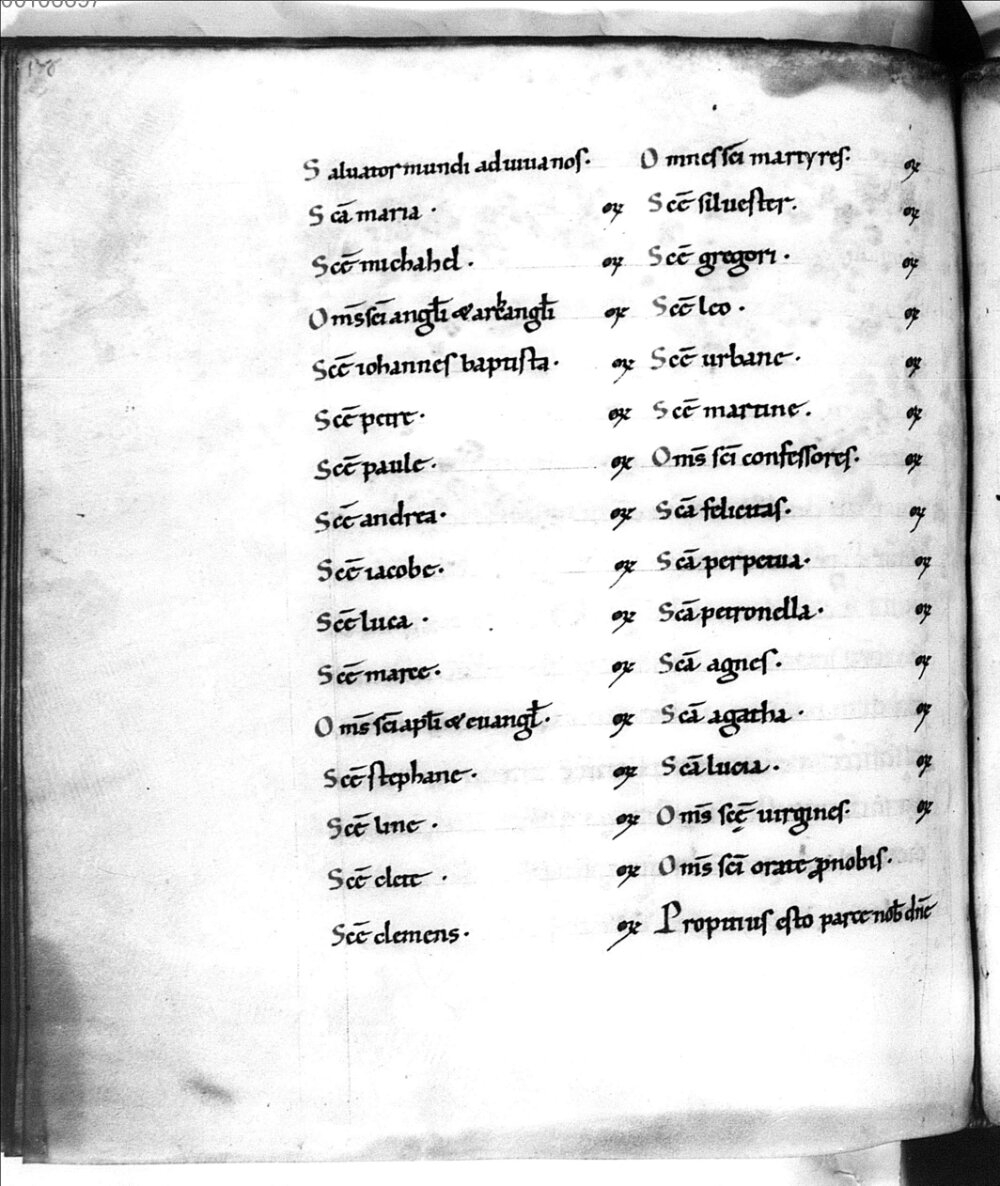 Saluator mundi adiuua nos·
Scā maria · oɼ
Scē michahel · oɼ
Om̄s sc̄i angl̄i & archangl̄i oɼ
Scē iohannes baptista · oɼ
Scē petre · oɼ
Scē paule · oɼ
Scē andrea · oɼ
Scē iacobe · oɼ
Scē luca · oɼ
Scē marce · oɼ
Om̄s sc̄i apl̄i & euangl̄ · oɼ
Scē stephane · oɼ
Scē line · oɼ
Scē clete · oɼ
Scē clemens · oɼ
Omnes sc̄i martyres · oɼ
Scē siluester · oɼ
Scē gregori · oɼ
Scē leo · oɼ
Scē urbane · oɼ
Scē martine · oɼ
Om̄s sc̄i confessores · oɼ
Scā felicitas · oɼ
Scā perpetua · oɼ
Scā petronella · oɼ
Scā agnes · oɼ
Scā agatha · oɼ
Scā lucia · oɼ
Om̄s scę̄ uirgines · oɼ
Om̄s sc̄i orate ꝓ nobis ·
Propitius esto parce nob̄ dn̄e